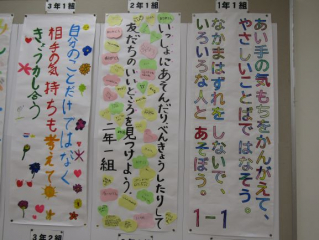 3年1組
2年1組
1年1組
あい手の気もちをかんがえて、
やさしいことばではなそう。
なかまはずれをしないで、
いろいろな人とあそぼう。
1-1
いっしょにあそんだりべんきょうしたりして
友だちのいいところを見つけよう。
二年一組
自分のことだけではなく
相手の気持ちも考えて
きょうかし合う
3年2組